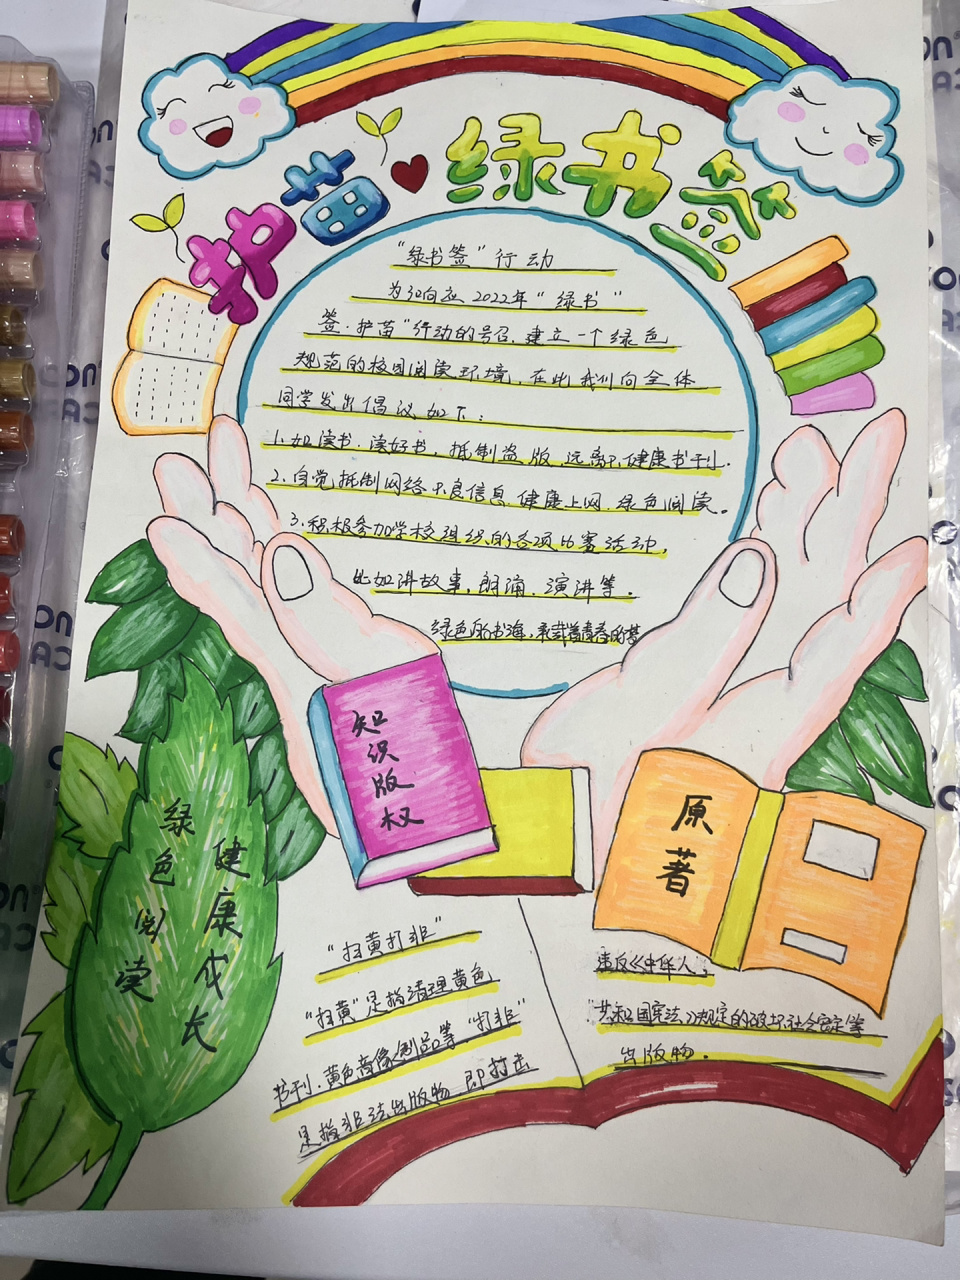 护苗 绿书签
“绿书签”行动
为响应2022年“绿书”
签·护苗”行动的号召,建立一个绿色
规范的校园阅读环境,在此我们向全体
同学发出倡议如下:
1.如读书·读好书,抵制盗版,远离不健康书刊.
2.自觉抵制网络不良信息,健康上网,绿色阅读。
3.积极参加学校组织的各项比赛活动,
比如讲故事,朗诵,演讲等。
绿色的书海,承载着青春的梦
知识版权
原著
绿色阅读
健康成长
“扫黄打非”
“扫黄”是指清理黄色
书刊、黄色音像制品等.“打非”
是指非法出版物,即打击
违反《中华人
共和国宪法》规定的破坏社会安定等
出版物.